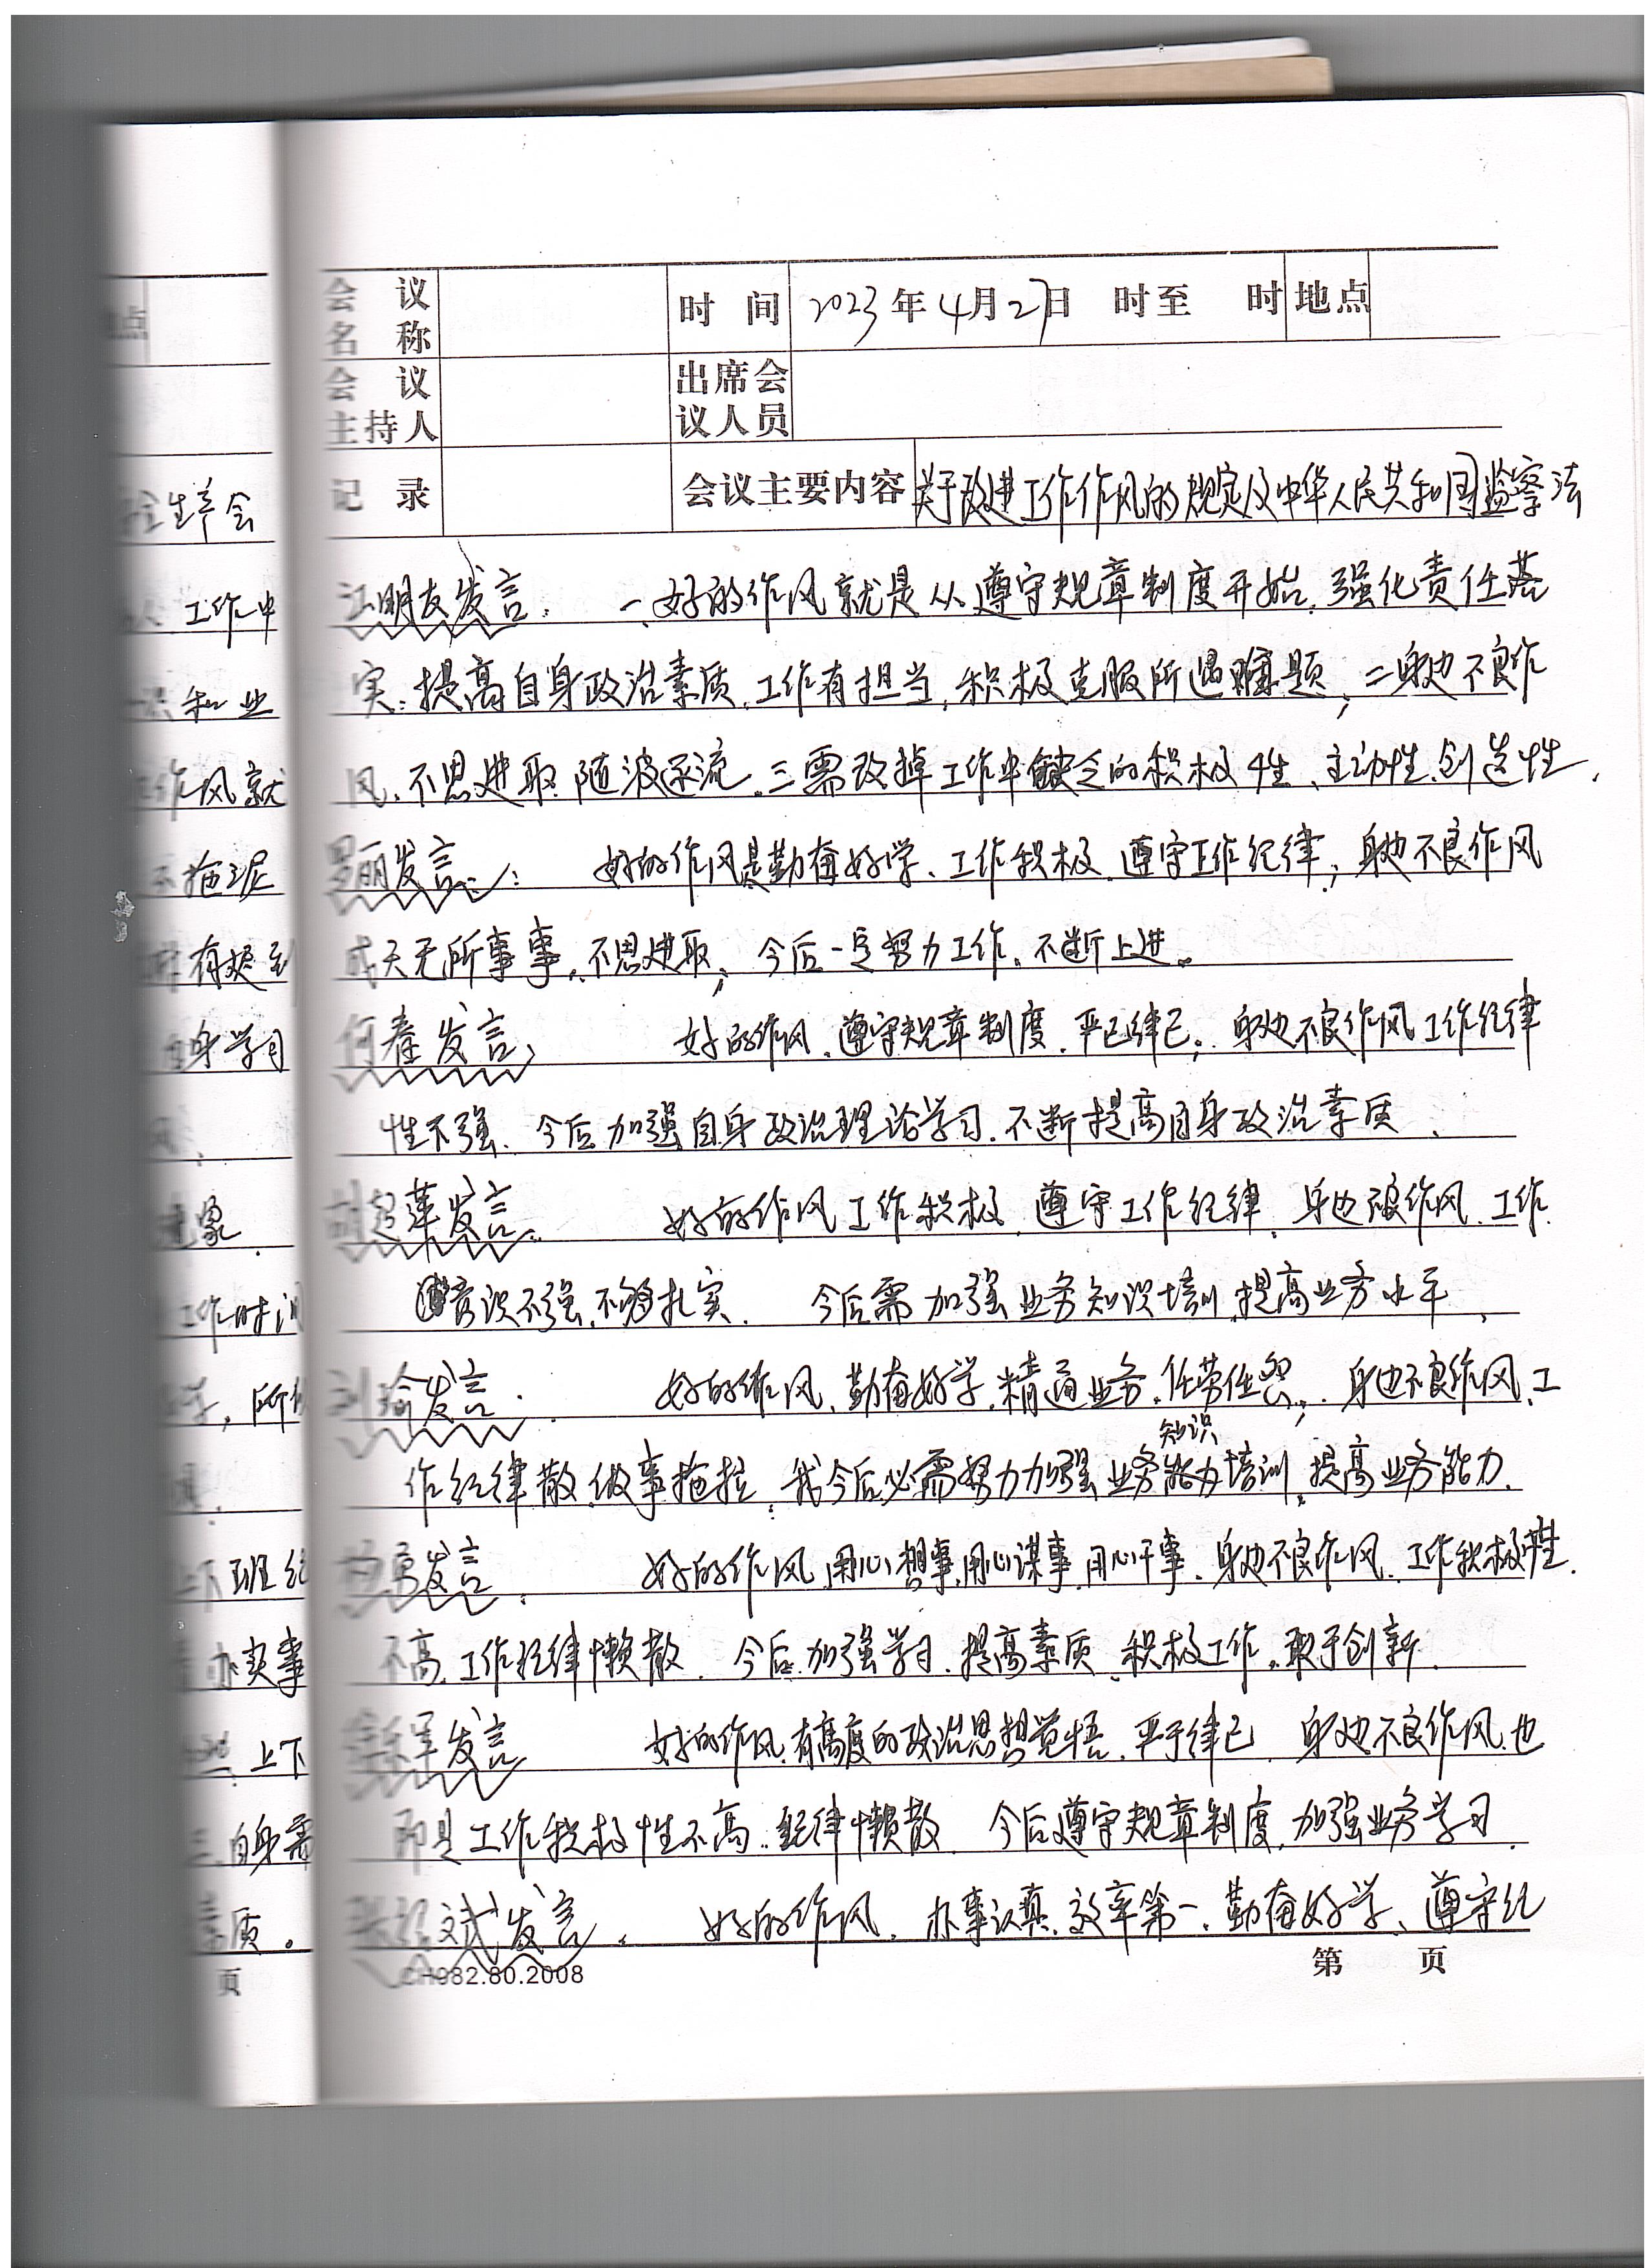 会 议 名 称 时 间 2023年4月27日 时至 时 地点
会 议 主持人 出席会议人员
记 录 会议主要内容 关于改进工作作风的规定及中华人民共和国监察法
江明友发言: 一、好的作风就是从遵守规章制度开始,强化责任落
实;提高自身政治素质,工作有担当,积极克服所遇难题;二身边不良作
风,不思进取,随波逐流,三需改掉工作中缺乏的积极性、主动性、创造性,
丽发言: 好的作风是勤奋好学、工作积极,遵守工作纪律;身边不良作风
成天无所事事,不思进取;今后一定努力工作,不断上进。
何春发言, 好的作风,遵守规章制度,严己律己,身边不良作风工作纪律
性不强、今后加强自身政治理论学习,不断提高自身政治素质、
超莲发言: 好的作风工作积极,遵守工作纪律,身边作风,工作
意识不强,不够扎实. 今后需加强业务知识培训,提高业务水平,
刘瑜发言. 好的作风,勤奋好学,精通业务,任劳任怨;身边不良作风,工
作纪律散,做事拖拉,我今后必需努力加强业务知识培训,提高业务能力.
勇发言. 好的作风,用心想事,用心谋事,用心干事,身边不良作风,工作积极性
不高,工作纪律懒散.今后加强学习,提高素质,积极工作,敢于创新.
军发言 好的作风,有高度的政治思想觉悟,严于律己 身边不良作风,也
即是工作积极性不高,纪律懒散 今后遵守规章制度,加强业务学习.
文斌发言. 好的作风,办事认真,效率第一,勤奋好学、遵守纪
CH982.80.2008 第 页
点
生会
工作中
和业
作风就
拖泥
有
自身学习
象.
工作时
所
上下班纪
办实事
上下
三、自身需
素质。
页